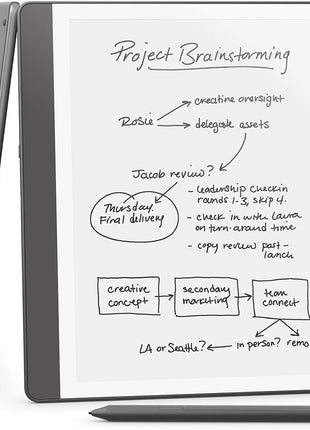 Project Brainstorming
Rosie
creative oversight
delegate assets
Jacob review?
- leadership checkin
rounds 1-3, skip 4.
Thursday
Final delivery
- check in with Laura
on turn-around time
- copy review post-
launch
creative
concept
secondary
marketing
team
connect
LA or Seattle?
in person?
remo